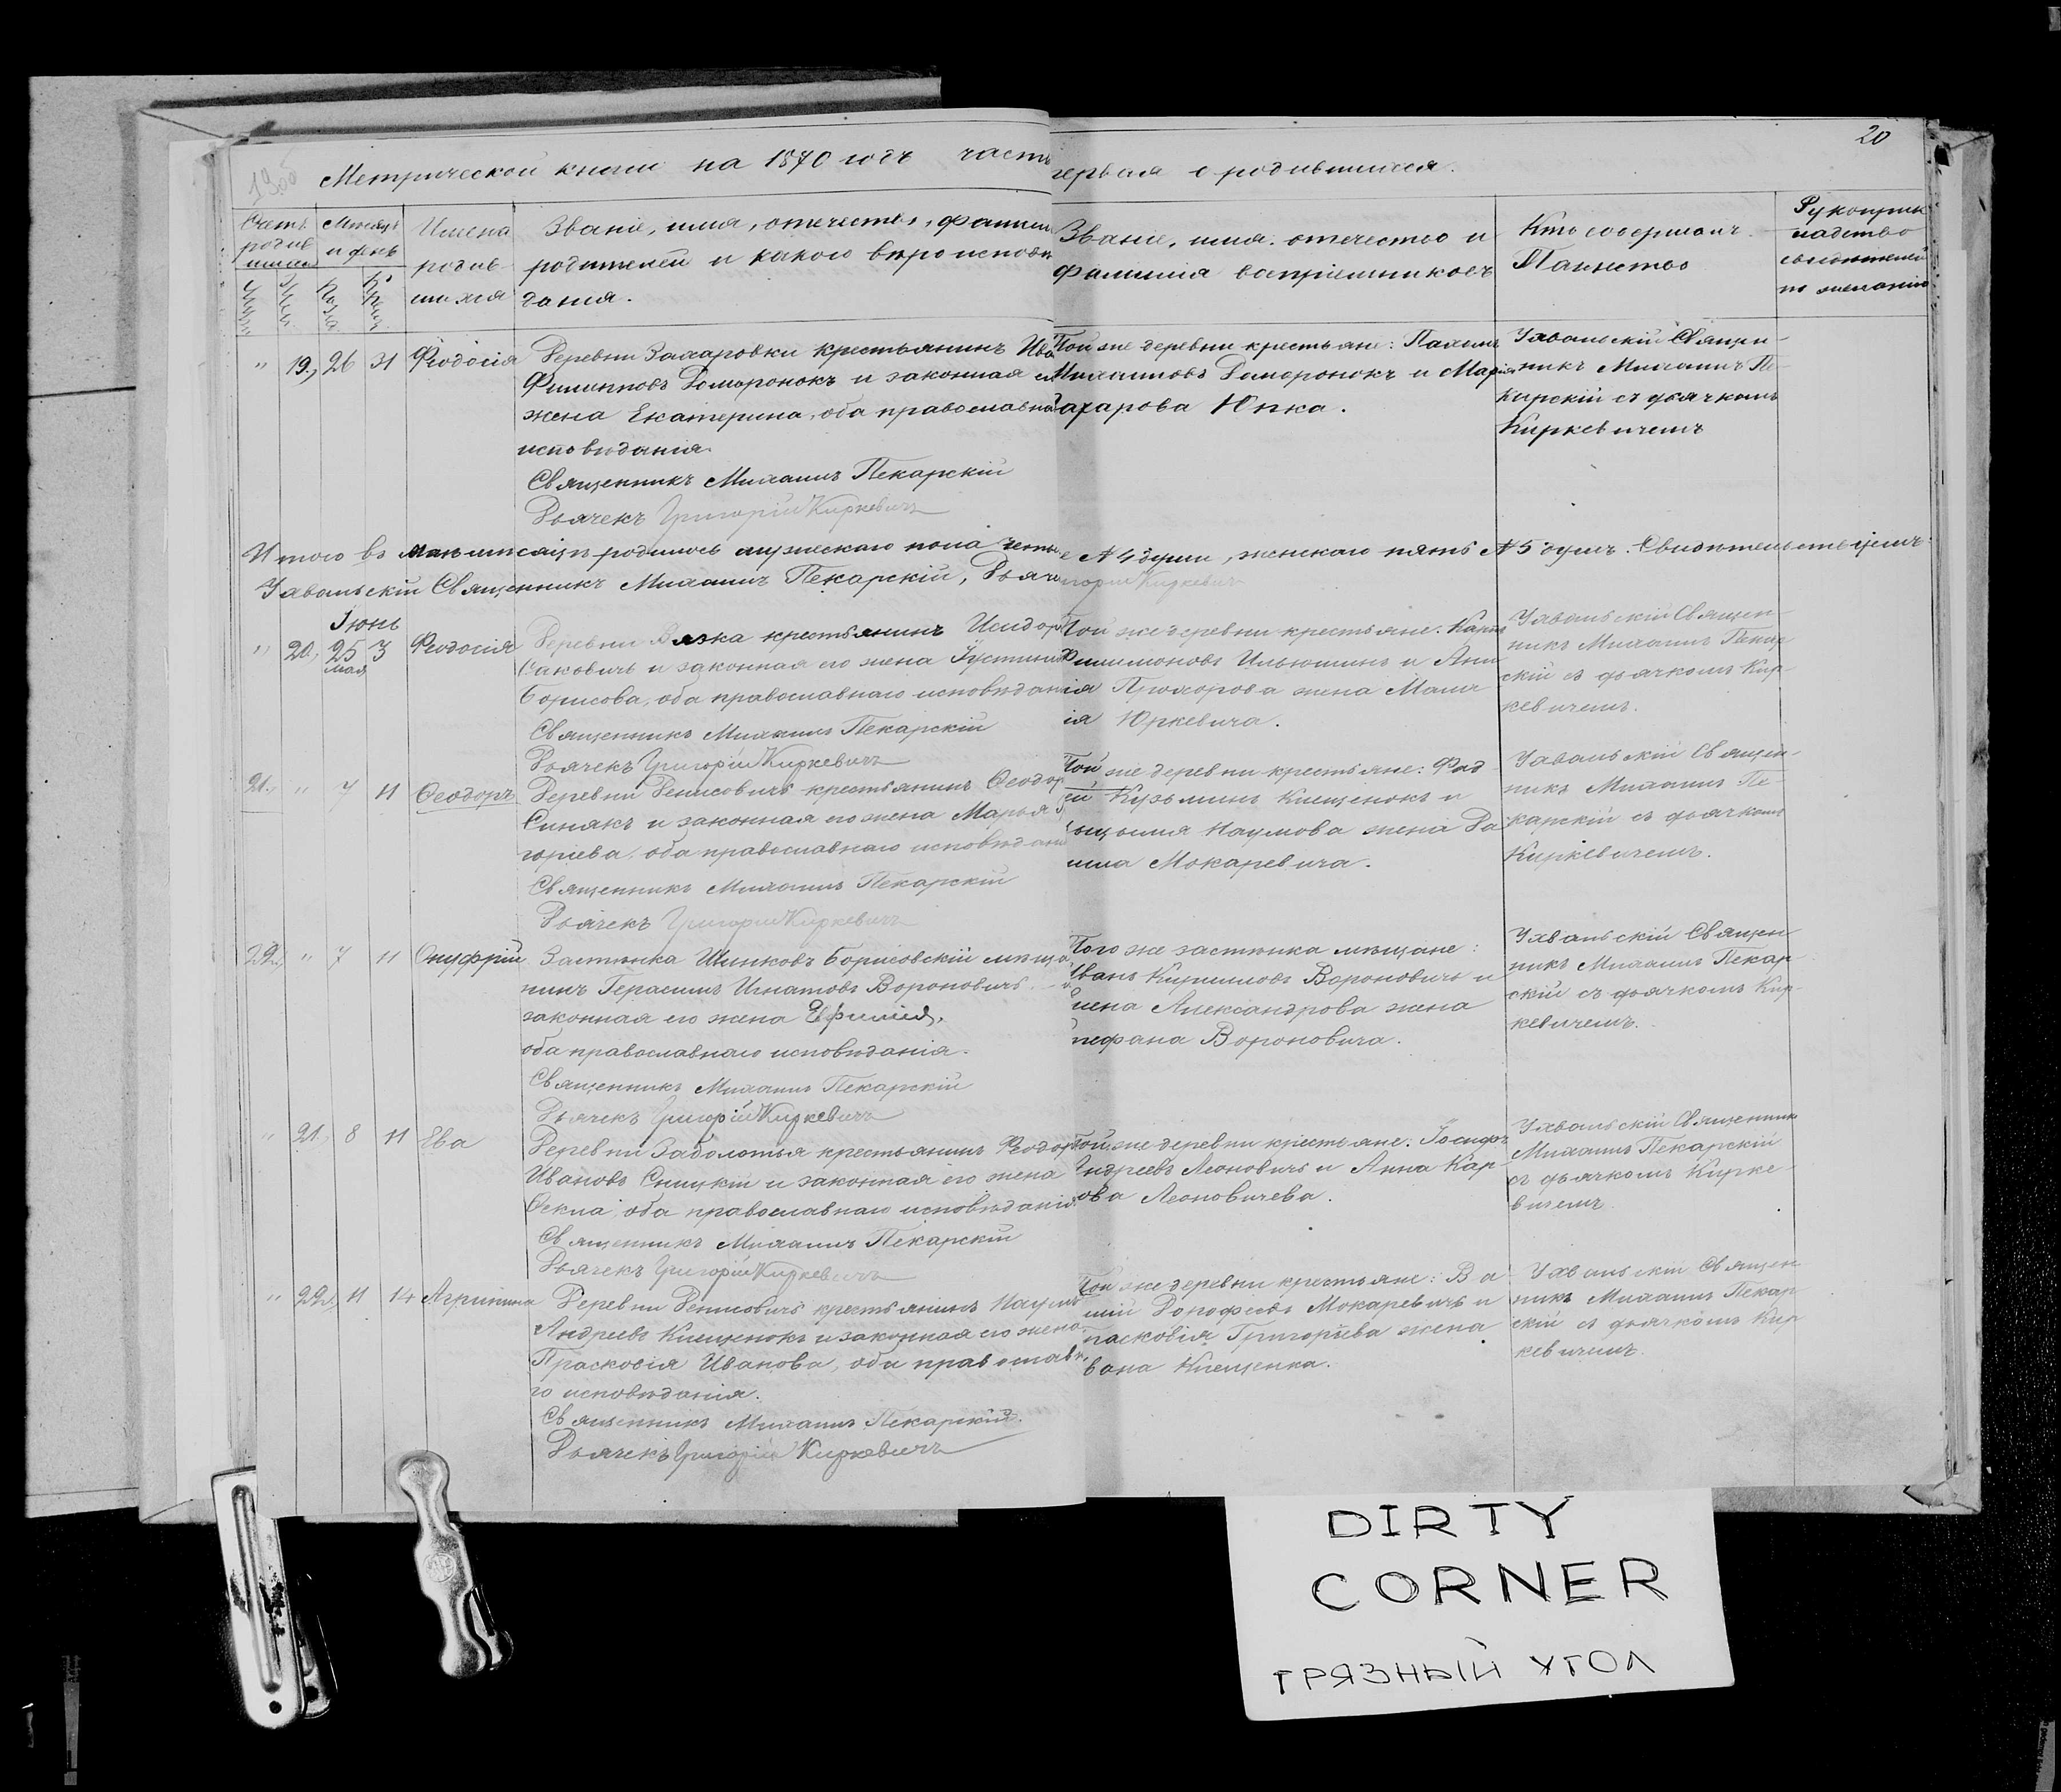 20
Метрической книги на 1870 годъ часть первая о родившихся.
Счетъ родив шихся
Месяцъ и день
Имена родив- шихся
Званіе, имя, отечество, фамили родителей и какого вѣроисповѣ данія.
Званіе, имя, отечество и фамилія воспріемниковъ
Кто совершалъ Таинство
Рукоприк ладство свидѣтелей по желанію
" 19. 26 31 Ѳеодосія
Деревни Захаровки крестьянинъ Ива
Филипповъ Доморонокъ и законная
жена Екатерина, оба православна
исповѣданія.
Священникъ Михаилъ Пекарскій
Дьячекъ Григорій Киркевичъ
Той же деревни крестьяне:
Михаиловъ Доморонокъ и Марія
ахарова Юпка.
Ухвальскій Священ-
никъ Михаилъ Пе-
карскій съ дьячкомъ
Киркевичемъ
Итого въ маѣ мѣсяцѣ родилось мужескаго пола четы е № 4 души, женскаго пять № 5 душъ. Свидѣтельствуемъ:
Ухвальскій Священникъ Михаилъ Пекарскій, Дьяч игорій Киркевичъ
Іюнь
" 20. 25 3 Ѳеодосія
мая
Деревни Вязка крестьянинъ Исидор
Саковичъ и законная его жена Іустинія
Борисова, оба православнаго исповѣдан
Священникъ Михаилъ Пекарскій
Дьячекъ Григорій Киркевичъ
Той же деревни крестьяне. Карпъ
Филимоновъ Ильюшинъ и Анн
ія Прохорова жена
ія Юркевича.
Ухвальскій Священ-
никъ Михаилъ Пекар
скій съ дьячкомъ Кир-
кевичемъ.
21. " 7 11 Ѳеодоръ
Деревни Денисовичъ крестьянинъ Ѳеодор
Синякъ и законная его жена Марья
горіева, оба православнаго исповѣдан
Священникъ Михаилъ Пекарскій
Дьячекъ Григорій Киркевичъ
Той же деревни крестьяне: Фад
ей Кузьминъ Клещенокъ и
Наумова жена Да
нила Мокаревича.
Ухвальскій Священ-
никъ Михаилъ Пе-
карскій съ дьячкомъ
Киркевичемъ.
22. " 7 11 Онуфрій
Застѣнка Шинковъ Борисовскій мѣща
нинъ Герасимъ Игнатовъ Вороновичъ
законная его жена Ефимія,
оба православнаго исповѣданія.
Священникъ Михаилъ Пекарскій
Дьячекъ Григорій Киркевичъ
Того же застѣнка мѣщане:
Иванъ Кириловъ Вороновичъ и
лена Александрова жена
тефана Вороновича.
Ухвальскій Священ
никъ Михаилъ Пекар-
скій съ дьячкомъ Кир-
кевичемъ.
" 21. 8 11 Ева
Деревни Заболотья крестьянинъ Ѳеодор
Ивановъ Сницкій и законная его жена
Ѳекла, оба православнаго исповѣданія
Священникъ Михаилъ Пекарскій
Дьячекъ Григорій Киркевичъ
Той же деревни крестьяне: Іосифъ
Андреевъ Леоновичъ и Анна Кар-
ова Леоновичева.
Ухвальскій Священникъ
Михаилъ Пекарскій
съ дьячкомъ Кирке-
вичемъ.
" 22. 11 14 Агрипина
Деревни Денисовичъ крестьянинъ Наумъ
Андреевъ Клещенокъ и законная его жена
Прасковія Иванова, оба православн.
го исповѣданія.
Священникъ Михаилъ Пекарскій.
Дьячекъ Григорій Киркевичъ
Той же деревни крестьяне: Ва
илій Дорофеевъ Мокаревичъ и
расковія Григорьева жена
вана Клещенка.
Ухвальскій Священ
никъ Михаилъ Пекар
скій съ дьячкомъ Кир
кевичемъ.
DIRTY
CORNER
ГРЯЗНЫЙ УГОЛ